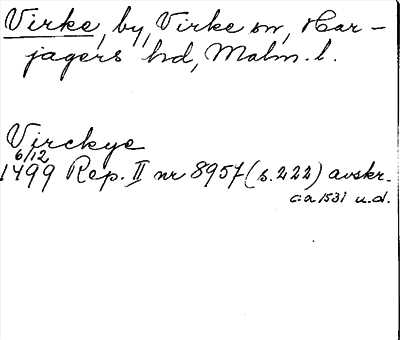 Virke, by, Virke sn, Har-
jagers hd, Malm. l.
Virckye
6/12
1499 Rep. II nr 8957 (s. 222) avskr.
ca 1531 u.d.